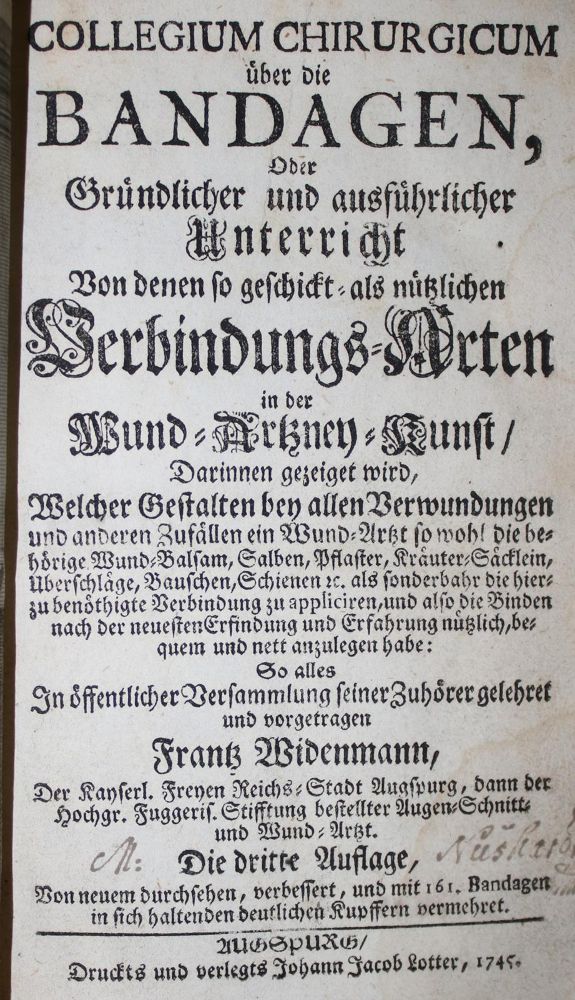 COLLEGIUM CHIRURGICUM
über die
BANDAGEN,
Oder
Gründlicher und ausführlicher
Unterricht
Von denen so geschickt-als nützlichen
Verbindungs-Arten
in der
Wund-Artzney-Kunst/
Darinnen gezeiget wird,
Welcher Gestalten bey allen Verwundungen
und anderen Zufällen ein Wund-Artzt so wohl die be-
hörige Wund-Balsam, Salben, Pflaster, Kräuter-Säcklein,
Uberschläge, Bauschen, Schienen ꝛc. als sonderbahr die hier-
zu benöthigte Verbindung zu appliciren, und also die Binden
nach der neuesten Erfindung und Erfahrung nützlich, be-
quem und nett anzulegen habe:
So alles
In öffentlicher Versammlung seiner Zuhörer gelehret
und vorgetragen
Frantz Widenmann,
Der Kayserl. Freyen Reichs-Stadt Augspurg, dann der
Hochgr. Fuggeris. Stifftung bestellter Augen-Schnitt-
und Wund-Artzt.
M:
Die dritte Auflage,
Von neuem durchsehen, verbessert, und mit 161. Bandagen
in sich haltenden deutlichen Kupffern vermehret.
AUGSPURG/
Druckts und verlegts Johann Jacob Lotter, 1745.